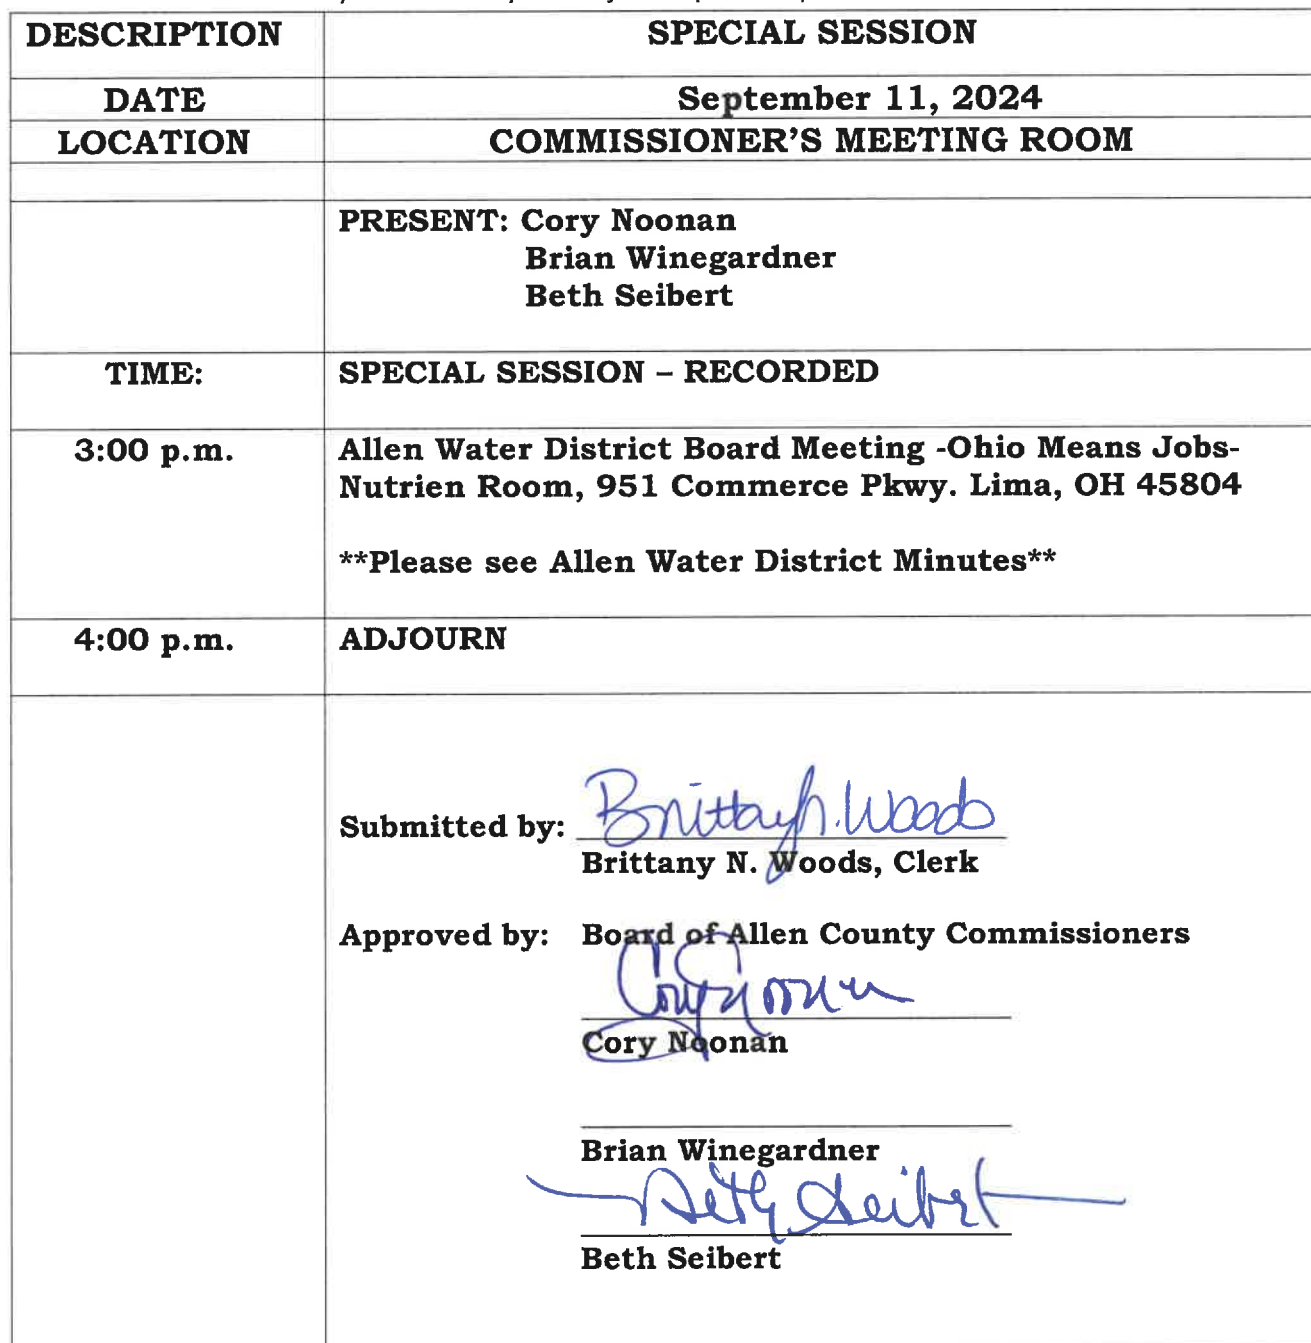 DESCRIPTION SPECIAL SESSION
DATE September 11, 2024
LOCATION COMMISSIONER'S MEETING ROOM
PRESENT: Cory Noonan
Brian Winegardner
Beth Seibert
TIME: SPECIAL SESSION – RECORDED
3:00 p.m. Allen Water District Board Meeting -Ohio Means Jobs-
Nutrien Room, 951 Commerce Pkwy. Lima, OH 45804
**Please see Allen Water District Minutes**
4:00 p.m. ADJOURN
Submitted by: Brittany N. Woods
Brittany N. Woods, Clerk
Approved by: Board of Allen County Commissioners
Cory Noonan
Cory Noonan
Brian Winegardner
Beth Seibert
Beth Seibert